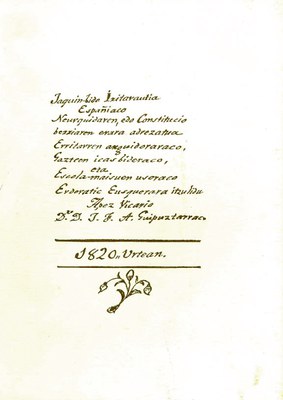 Jaquin-bide Iritarautia
Españiaco
Neurquidaren, edo Constitucio
berriaren erara adrezatua
Erritarren arguidoraraco,
Gazteen icasbideraco,
eta
Escola-maisuen usoraco
Erderatic Eusquerara itzulidu
Apez Vicario
Dn. D. J. F. A. Guipuztarrac.
1820,, Urtean.